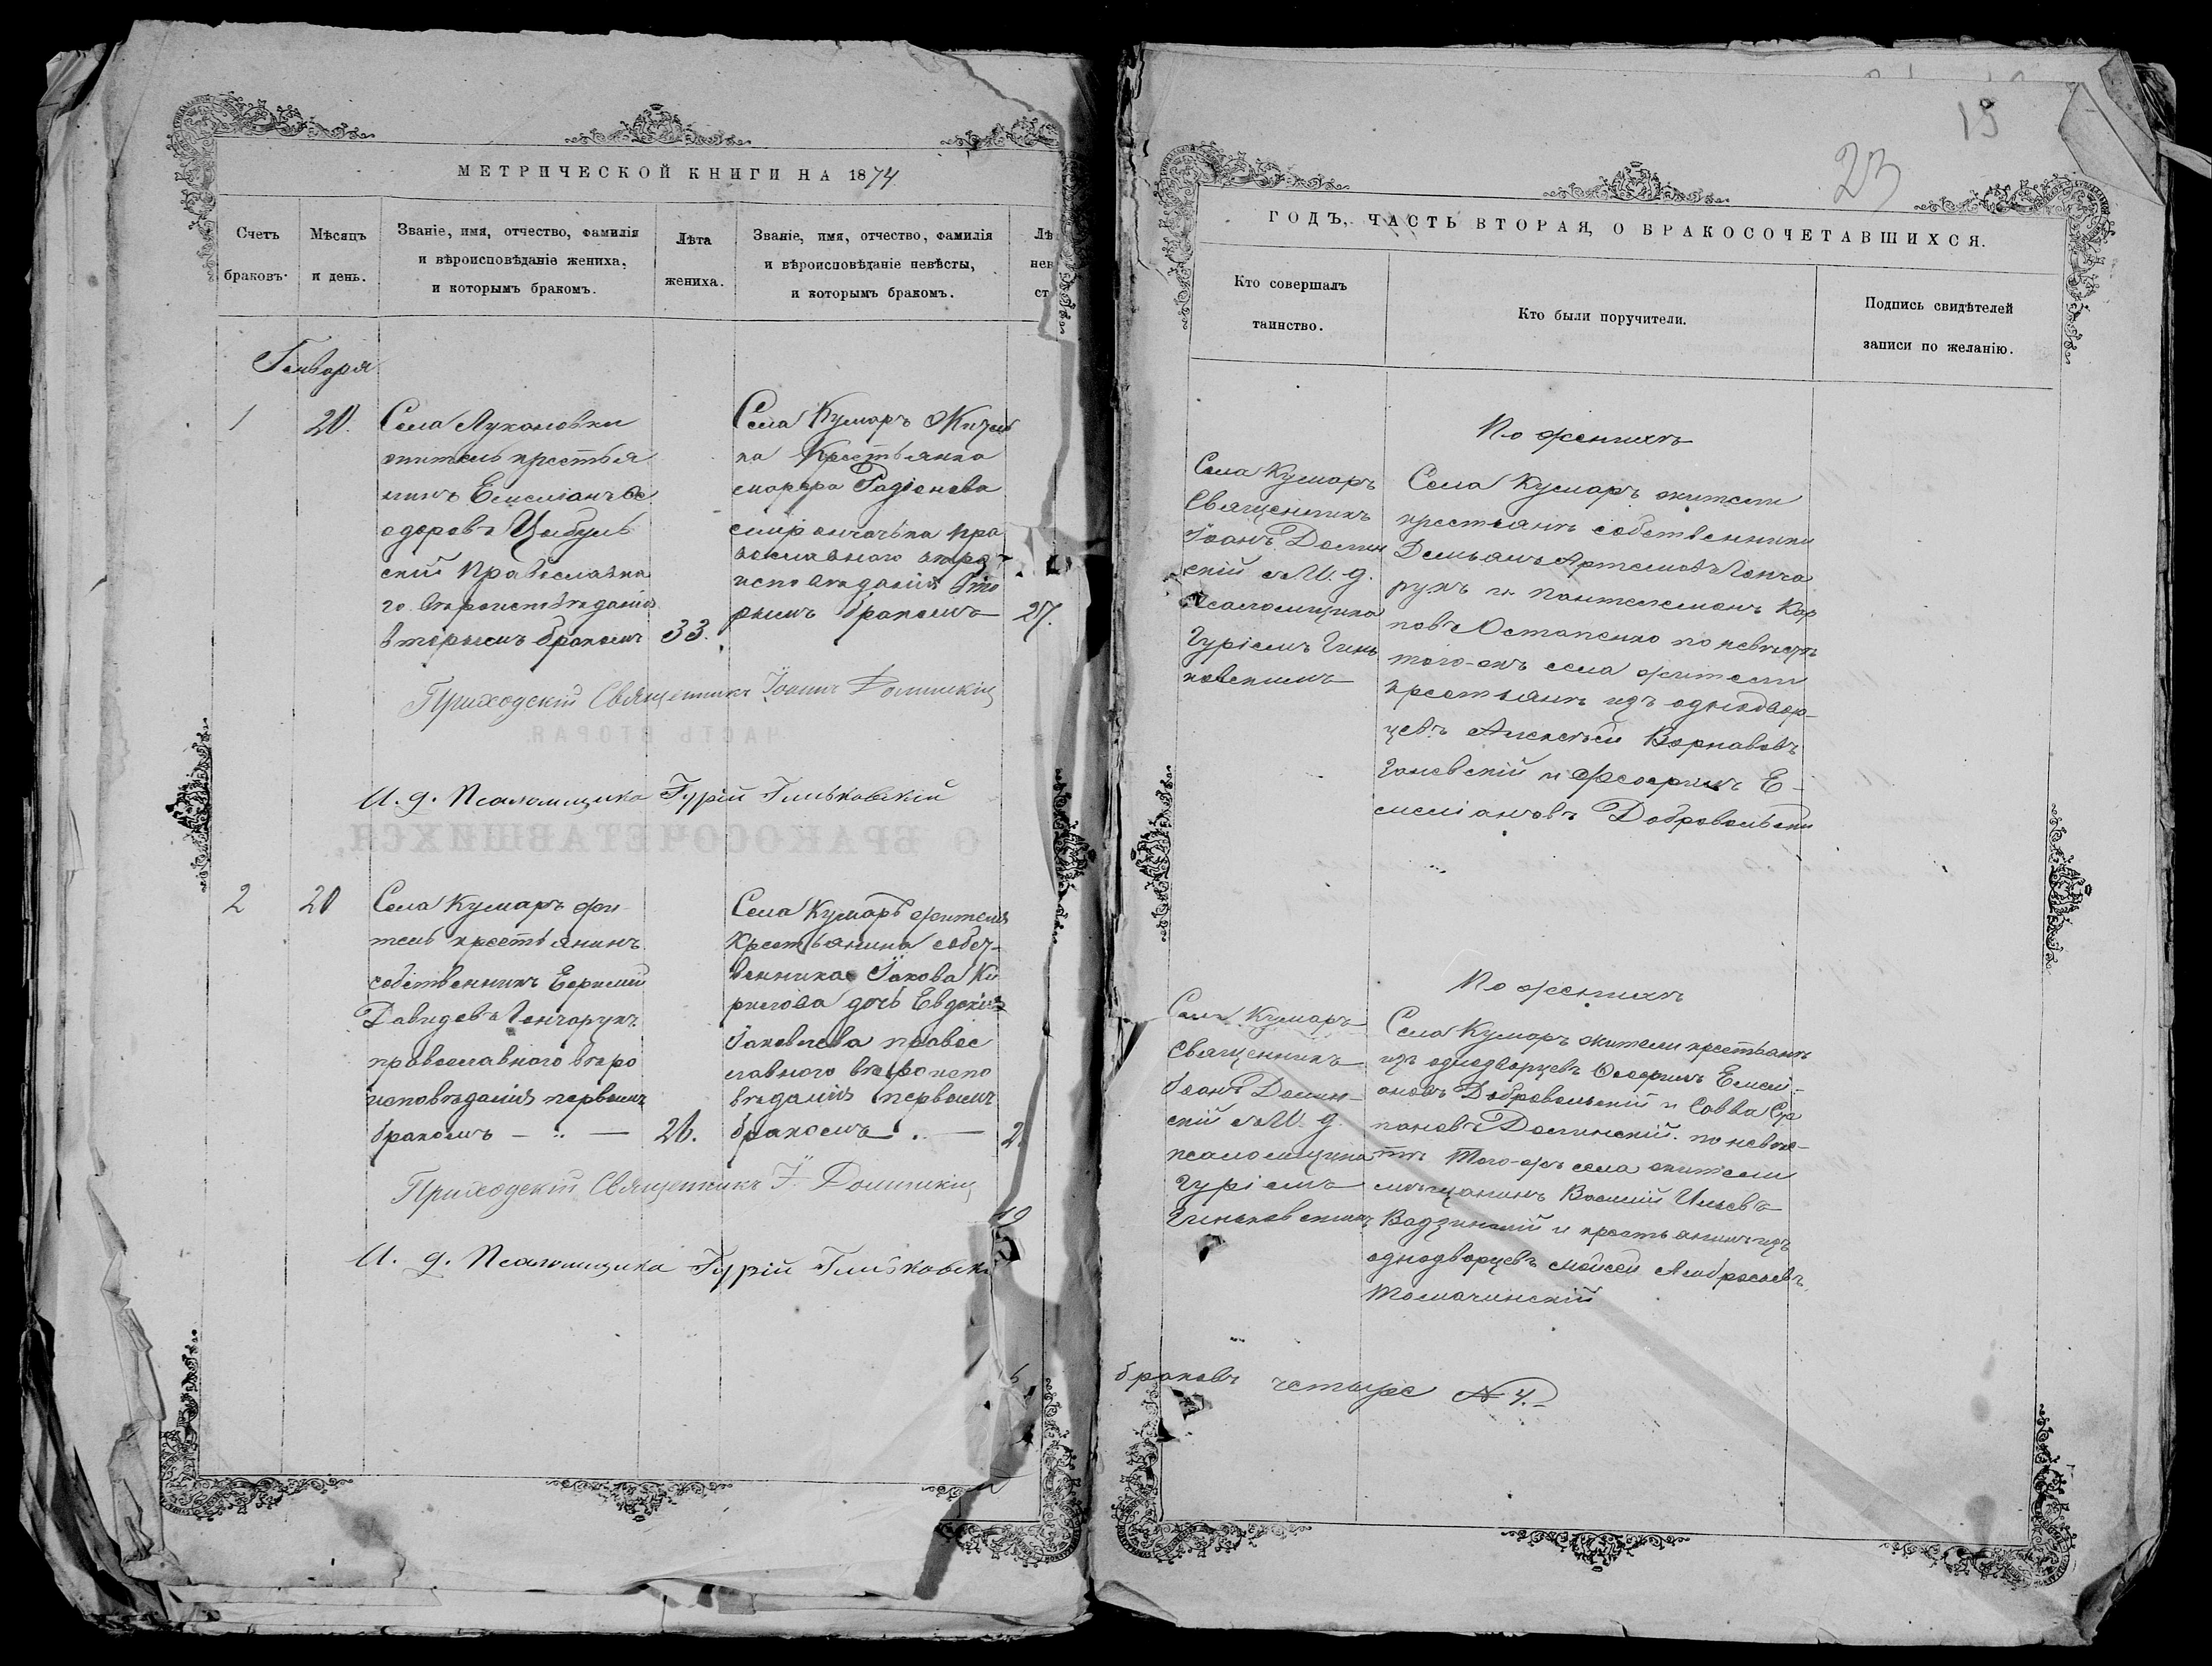 МЕТРИЧЕСКОЙ КНИГИ НА 1874
Счетъ
браковъ.
Мѣсяцъ
и день.
Званіе, имя, отчество, фамилія
и вѣроисповѣданіе жениха,
и которымъ бракомъ.
Лѣта
жениха.
Званіе, имя, отчество, фамилія
и вѣроисповѣданіе невѣсты,
и которымъ бракомъ.
Лѣ
нев
ст
Генваря
1
20.
Села Лукановки
житель крестья
нинъ Емеліанъ Ѳе
одоровъ Цыбуль
скій Православна
го вѣроисповѣданія
вторымъ бракомъ
33.
Села Кумаръ Житель
ка Крестьянка
Радіонова
пра
вославнаго вѣро
исповѣданія Вто
рымъ бракомъ
27.
Приходскій Священникъ Іоаннъ Долинскій
И. д. Псаломщика Гурій Гиньковскій
2
20
Села Кумаръ жи
тель крестьянинъ
собственникъ Ефимій
Давидовъ Гончарукъ
православнаго вѣро
исповѣданія первымъ
бракомъ — „ —
26.
Села Кумаръ жителя
Крестьянина собст
венника Іакова Ки
рилова дочь Евдокія
Іаковлева правос
лавнаго вѣроиспо
вѣданія первымъ
бракомъ . —
2
Приходскій Священникъ І. Долинскій
И. д. Псаломщика Гурій Гиньковскі
19
23
ГОДЪ, ЧАСТЬ ВТОРАЯ, О БРАКОСОЧЕТАВШИХСЯ.
Кто совершалъ
таинство.
Кто были поручители.
Подпись свидѣтелей
записи по желанію.
Села Кумаръ
Священникъ
Іоанъ Долин
скій съ И. д.
Псаломщика
Гуріемъ Гинь
ковскимъ
По женихѣ
Села Кумаръ жители
крестьянъ собственники
Демьянъ Артемовъ Гонча
рукъ и Пантелемонъ Кар
повъ Остапенко по невѣстѣ
того-жъ села жители
крестьянъ изъ однодвор-
цевъ Алексѣй Варнавовъ
Ганевскій и Феофилъ Е-
меліановъ Добровольскій
Села Кумаръ
Священникъ
Іоанъ Долин-
скій съ И. д.
псаломщика
Гуріемъ
Гиньковскимъ
По женихѣ
Села Кумаръ жители крестьянъ
изъ однодворцевъ Ѳеофилъ Емелі-
ановъ Добровольскій и Савва Сте
пановъ Долинскій. по невѣс-
тѣ Того-жъ села жители
мѣщанинъ Василій Ильевъ
Вадзинскій и крестьянинъ изъ
однодворцевъ Моисей Амбросіевъ
Томачинскій
браковъ четыре № 4.